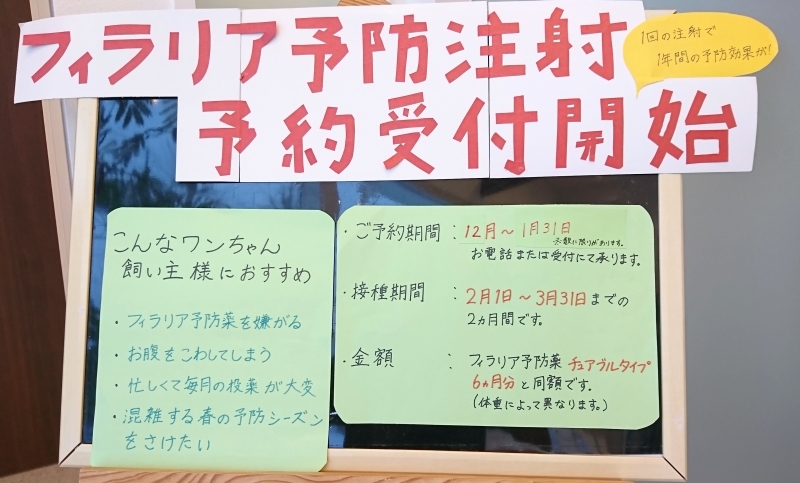 フィラリア予防注射
予約受付開始
1回の注射で
1年間の予防効果が!
こんなワンちゃん
飼い主様におすすめ
・フィラリア予防薬を嫌がる
・お腹をこわしてしまう
・忙しくて毎月の投薬が大変
・混雑する春の予防シーズン
をさけたい
・ご予約期間 : 12月〜1月31日
※数に限りがあります。
お電話または受付にて承ります。
・接種期間 : 2月1日〜3月31日までの
2ヵ月間です。
・金額 : フィラリア予防薬 チュアブルタイプ
6ヵ月分と同額です。
(体重によって異なります。)